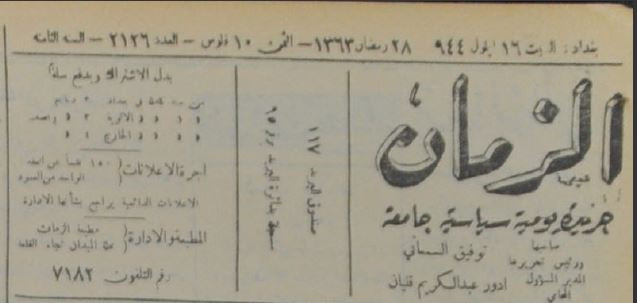 بغداد : السبت ١٦ ايلول ٩٤٤ ٢٨ رمضان ١٣٦٣ – الثمن ١٠ فلوس – العدد ٢١٢٦ – السنة الثامنة
الزمان
جريدة يومية سياسية جامعة
صاحبها
ورئيس تحريرها
توفيق السمعاني
المدير المسؤول
المحامي
ادور عبدالكريم قليان
صندوق البريد ١١٧
مسجلة بدائرة البريد برقم ٦٥
بدل الاشتراك ويدفع سلفاً
عن سنة في بغداد ٢ دينار
« « « الالوية ٢ « ونصف
« « « الخارج ٤ «
اجرة الاعلانات ( ١٥٠ فلساً عن العقد الواحد من العمود
الاعلانات الدائمية يراجع بشأنها الادارة
المطبعة والادارة ( مطبعة الزمان
الميدان تجاه القلعة
رقم التلفون ٧١٨٢